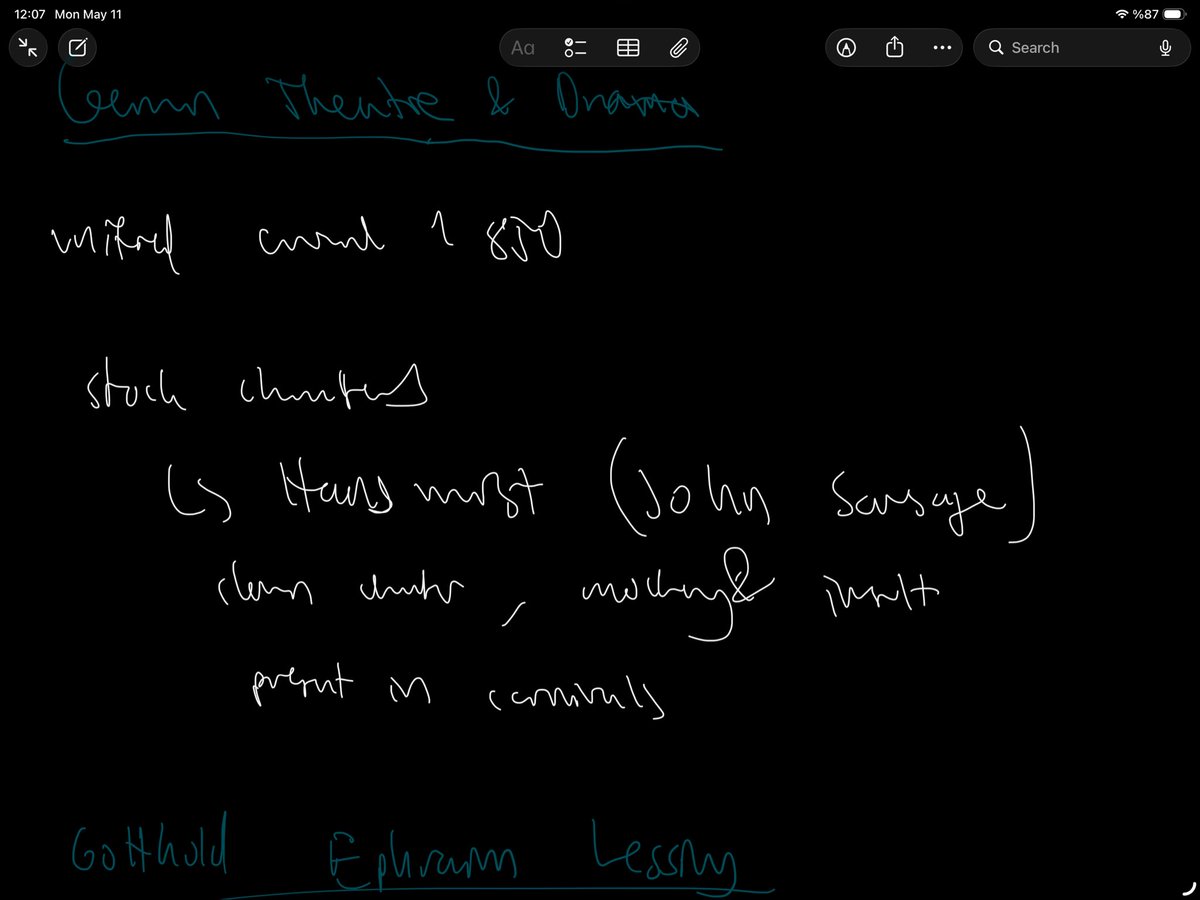 12:07 Mon May 11 %87
Aa Search
German Theatre & Drama
unified around 1850
stock characters
↳ Hanswurst (John Sausage)
clown character, mockery & insult
present in carnivals
Gotthold Ephraim Lessing